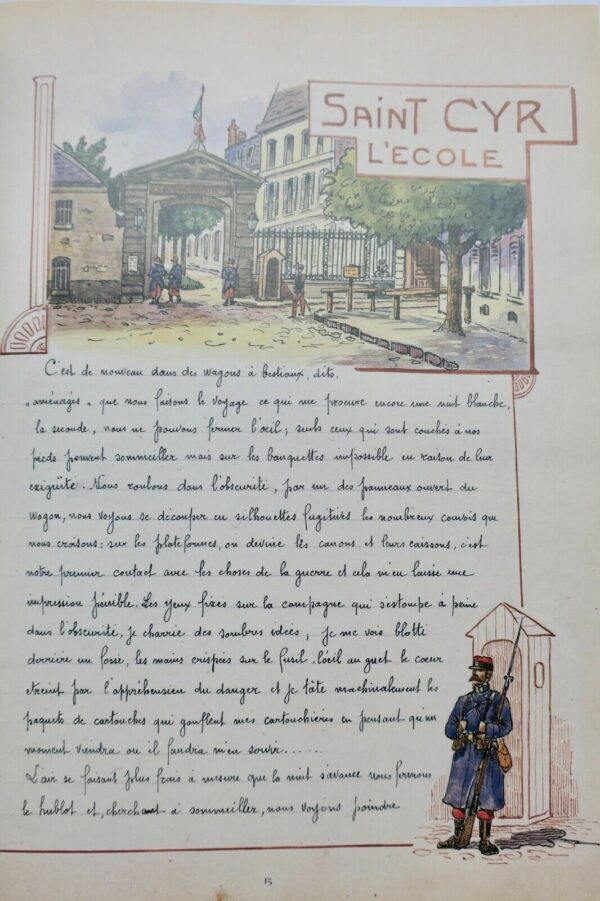 SAINT CYR
L'ECOLE
C'est de nouveau dans des wagons à bestiaux, dits,
"aménagés" que nous faisons le voyage ce qui me procure encore une nuit blanche,
la seconde, nous ne pouvons fermer l'œil; seuls ceux qui sont couchés à nos
pieds peuvent sommeiller mais sur les banquettes impossible en raison de leur
exiguïté. Nous roulons dans l'obscurité, par un des panneaux ouvert du
wagon, nous voyons se découper en silhouettes fugitives les nombreux convois que
nous croisons: sur les plateformes, on devine les canons et leurs caissons, c'est
notre premier contact avec les choses de la guerre et cela m'en laisse une
impression pénible. Les yeux fixés sur la campagne qui s'estompe à peine
dans l'obscurité, je charrie des sombres idées, je me vois blotti
derrière un fossé, les mains crispées sur le fusil. l'œil au guet le cœur
étreint par l'appréhension du danger et je tâte machinalement les
paquets de cartouches qui gonflent mes cartouchières en pensant qu'un
moment viendra ou il faudra m'en servir.....
L'air se faisant plus frais à mesure que la nuit s'avance nous fermons
le hublot et, cherchant à sommeiller, nous voyons poindre
15